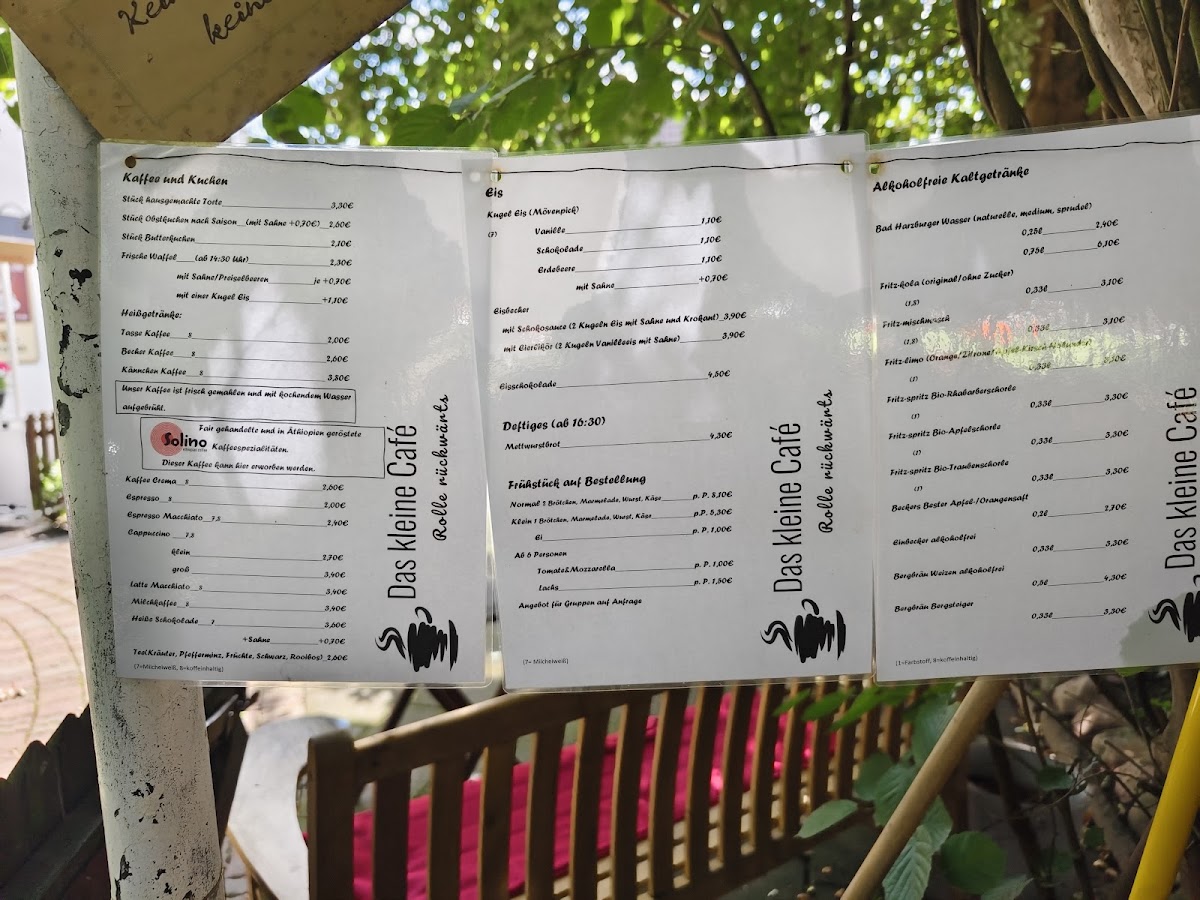 keine
Kaffee und Kuchen
Stück hausgemachte Torte 3,30€
Stück Obstkuchen nach Saison (mit Sahne +0,70€) 2,60€
Stück Butterkuchen 2,10€
Frische Waffel (ab 14:30 Uhr) 2,30€
mit Sahne/Preiselbeeren je +0,70€
mit einer Kugel Eis +1,10€
Heißgetränke:
Tasse Kaffee 8 2,00€
Becher Kaffee 8 2,60€
Kännchen Kaffee 8 3,80€
Unser Kaffee ist frisch gemahlen und mit kochendem Wasser
aufgebrüht.
Solino
Fair gehandelte und in Äthiopien geröstete
Kaffeespezialitäten.
Dieser Kaffee kann hier erworben werden.
Kaffee Crema 8 2,60€
Espresso 8 2,00€
Espresso Macchiato 7,8 2,40€
Cappuccino 7,8
klein 2,70€
groß 3,40€
Latte Macchiato 8 3,40€
Milchkaffee 8 3,40€
Heiße Schokolade 7 3,60€
+Sahne +0,70€
Tee(Kräuter, Pfefferminz, Früchte, Schwarz, Rooibos) 2,60€
(7=Milcheiweiß, 8=koffeinhaltig)
Das kleine Café
Rolle rückwärts
Eis
Kugel Eis (Mövenpick)
(7) Vanille 1,10€
Schokolade 1,10€
Erdebeere 1,10€
mit Sahne +0,70€
Eisbecher
mit Schokosauce (2 Kugeln Eis mit Sahne und Krokant) 3,90€
mit Eierlikör (2 Kugeln Vanilleeis mit Sahne) 3,90€
Eisschokolade 4,50€
Deftiges (ab 16:30)
Mettwurstbrot 4,30€
Frühstück auf Bestellung
Normal Brötchen, Marmelade, Wurst, Käse p. P. 8,10€
Klein 1 Brötchen, Marmelade, Wurst, Käse p.P. 5,30€
Ei p. P. 1,00€
Ab 6 Personen
Tomate&Mozzarella p. P. 1,00€
Lachs p. P. 1,50€
Angebot für Gruppen auf Anfrage
(7= Milcheiweiß)
Das kleine Café
Rolle rückwärts
Alkoholfreie Kaltgetränke
Bad Harzburger Wasser (naturelle, medium, sprudel)
0,25l 2,40€
0,75l 6,10€
Fritz-kola (original/ohne Zucker)
(1,8) 0,33l 3,10€
Fritz-mischmasch
(1,8) 0,33l 3,10€
Fritz-limo (Orange/Zitrone/Apfel-Kirsch-Holunder)
(1) 0,33l 3,30€
Fritz-spritz Bio-Rhabarberschorle
(1) 0,33l 3,30€
Fritz-spritz Bio-Apfelschorle
(1) 0,33l 3,30€
Fritz-spritz Bio-Traubenschorle
(1) 0,33l 3,30€
Beckers Bester Apfel-/Orangensaft
0,2l 2,70€
Einbecker alkoholfrei
0,33l 3,30€
Bergbräu Weizen alkoholfrei
0,5l 4,30€
Bergbräu Bergsteiger
0,33l 3,30€
(1=Farbstoff, 8=koffeinhaltig)
Das kleine Café